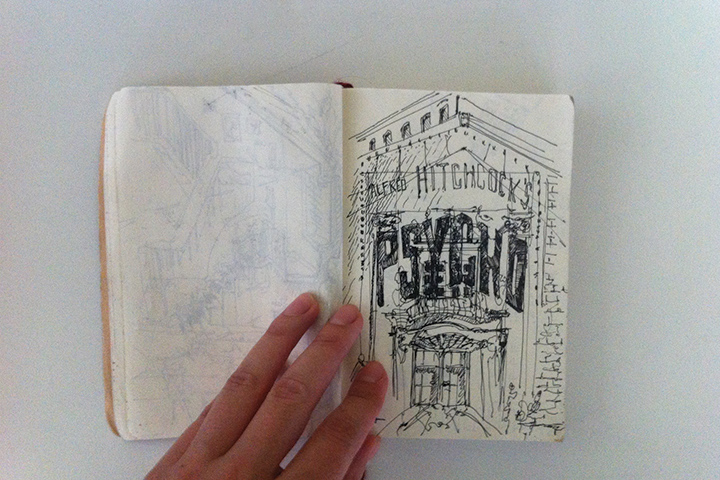 ALFRED HITCHCOCK'S
PSYCHO